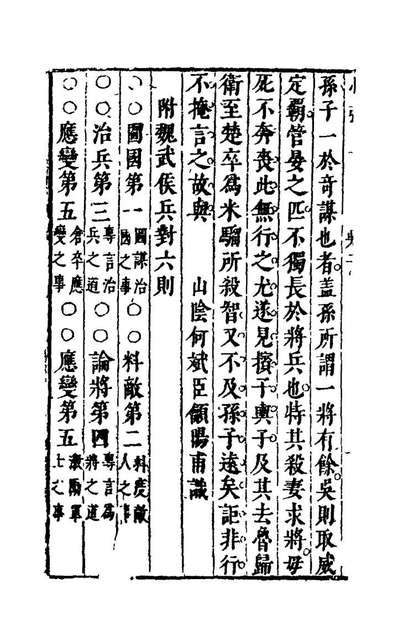 孫子一於奇謀也者蓋孫所謂一將有餘吳則取威
定霸管晏之匹不獨長於將兵也特其殺妻求將母
死不奔喪此無行之尤遂見擯于輿子及其去魯歸
衛至楚卒爲米騶所殺智又不及孫子遠矣詎非行
不掩言之故與 山陰何斌臣頷陽甫識
附魏武侯兵對六則
○○圖國第一圖謀治國之事○○料敵第二料度敵人之事
○○治兵第三專言治兵之道○○論將第四專言爲將之道
○○應變第五倉卒應變之事○○應變第五激勵軍士之事